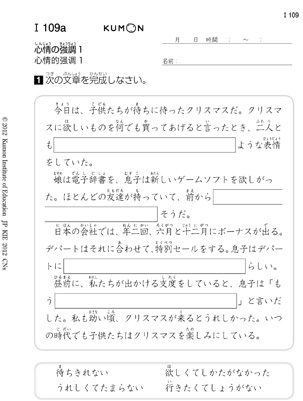 I 109
I 109a
KUMON
月 日 時間 : 〜 :
名前
しんじょう きょうちょう
心情の強調1
心情的强调 1
1 次の文章を完成しなさい。
今日は、子どもたちが待ちに待ったクリスマスだ。クリスマ
スに欲しいものを何でも買ってあげると言ったとき、二人と
も ような表情
をしていた。
娘は電子辞書を、息子は新しいゲームソフトを欲しがっ
た。ほとんどの友達が持っていて、前から
そうだ。
日本の会社では、年二回、六月と十二月にボーナスが出る。
デパートはそれに合わせて、特別セールをする。息子はデパー
トに らしい。
昼前に、私たちが出かける支度をしていると、息子は「も
う 」と言いだ
した。私も幼い頃、クリスマスが来るとうれしかった。いつ
の時代でも子供たちはクリスマスを楽しみにしている。
待ちきれない 欲しくてしかたがなかった
うれしくてたまらない 行きたくてしょうがない
© 2012 Kumon Institute of Education JP KIE 2012 CNs